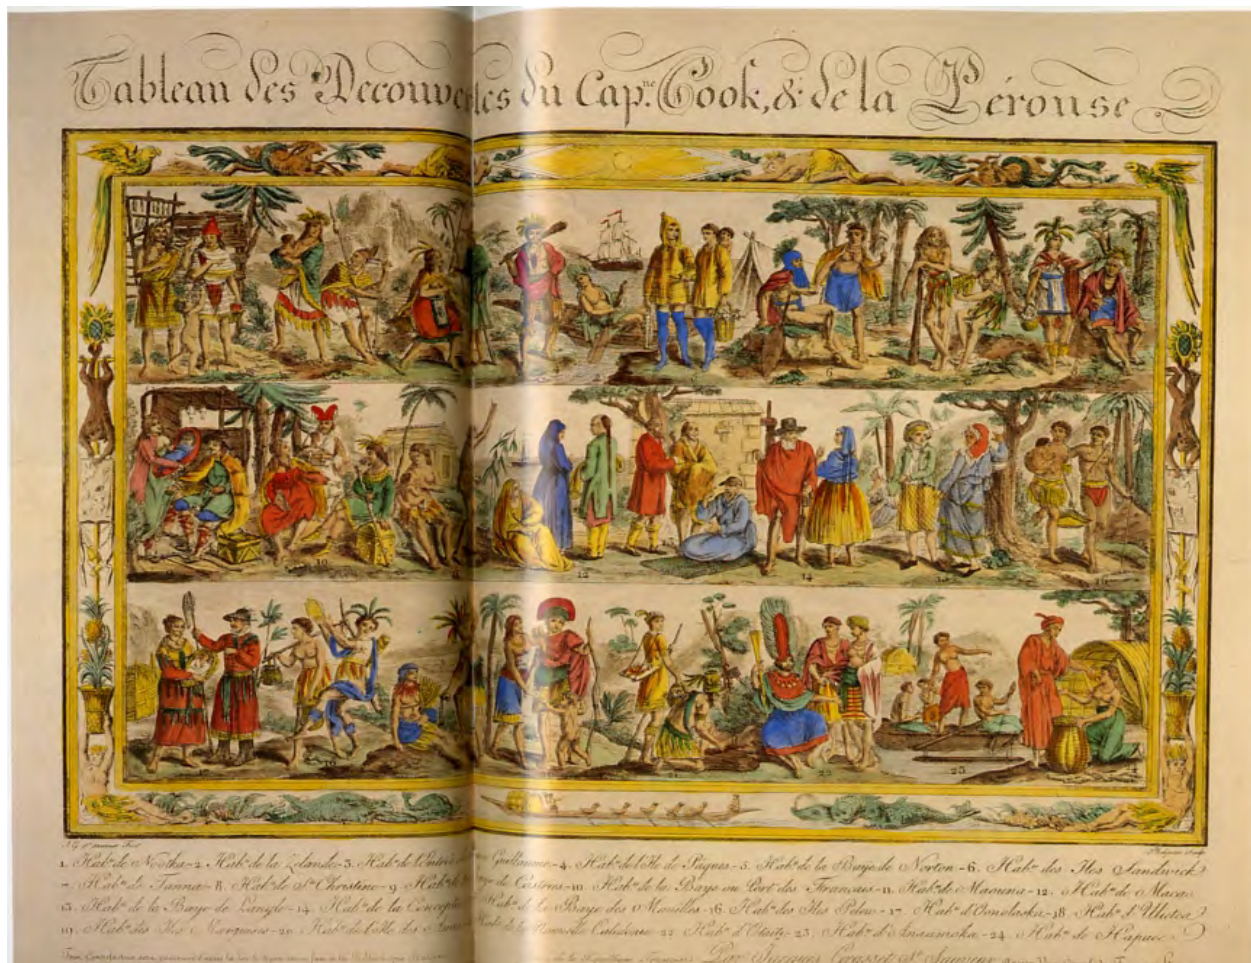 Tableau des Decouvertes du Cap.ne Cook, & de la Pérouse
1. Hab.s de Nootka - 2. Hab.s de la Zelande - 3. Hab.s de l'Entrée du Guillaume - 4. Hab.s de l'Ile de Pâques - 5. Hab.s de la Baye de Norton - 6. Hab.s des Iles Sandwick
7. Hab.s de Tanna - 8. Hab.s de S.te Christine - 9. Hab.s de Baye de Castries - 10. Hab.s de la Baye ou Port des Français - 11. Hab.s de Maouna - 12. Hab.s de Macao
13. Hab.s de la Baye de Langle - 14. Hab.s de la Concepti Hab.s de la Baye des Manilles - 16. Hab.s des Iles Pelew - 17. Hab.s d'Oonolaska - 18. Hab.s d'Ulietea
19. Hab.s des Iles Marquises - 20. Hab.s de l'Ile des Hab.s de la Nouvelle Calédonie - 22. Hab.s d'Otaity - 23. Hab.s d'Anaamoka - 24. Hab.s de Hapaee
Par Jacques Grasset S.t Sauveur